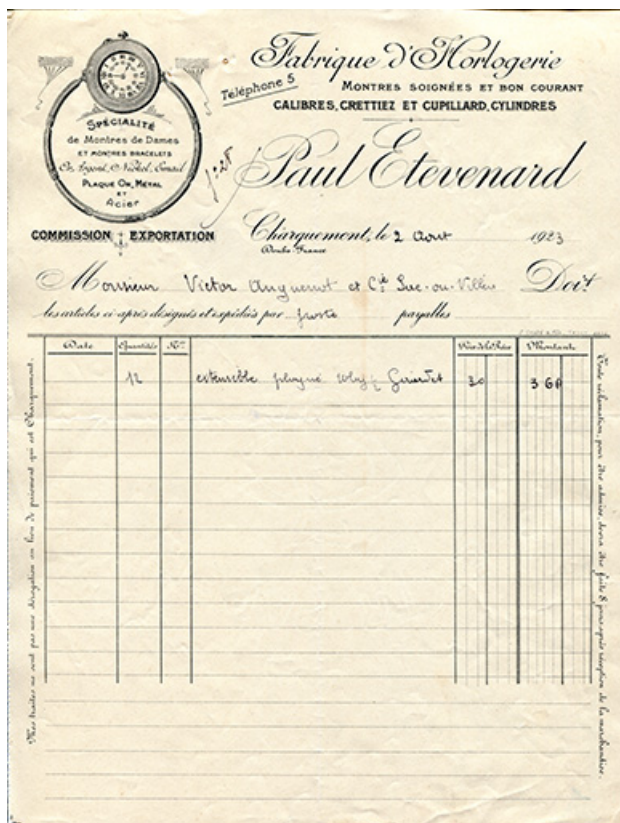 Fabrique d'Horlogerie
Téléphone 5
MONTRES SOIGNÉES ET BON COURANT
CALIBRES, CRETTIEZ ET CUPILLARD, CYLINDRES
SPÉCIALITÉ
de Montres de Dames
ET MONTRES BRACELETS
Or, Argent, Nickel, Email
PLAQUE OR, METAL
ET
Acier
COMMISSION EXPORTATION
Paul Etevenard
Charquemont, le 2 Aout 1923
Doubs-France
Monsieur Victor et Cie Doit
les articles ci-après désignés et expédiés par payables
Date Quantités Nos Prix de la Pièce Montants
12 extensible plaqué Girardet 30 360
Mes traites ne sont pas une dérogation au lieu de paiement qui est Charquemont.
Toute réclamation, pour être admise, devra être faite 8 jours après réception de la marchandise.